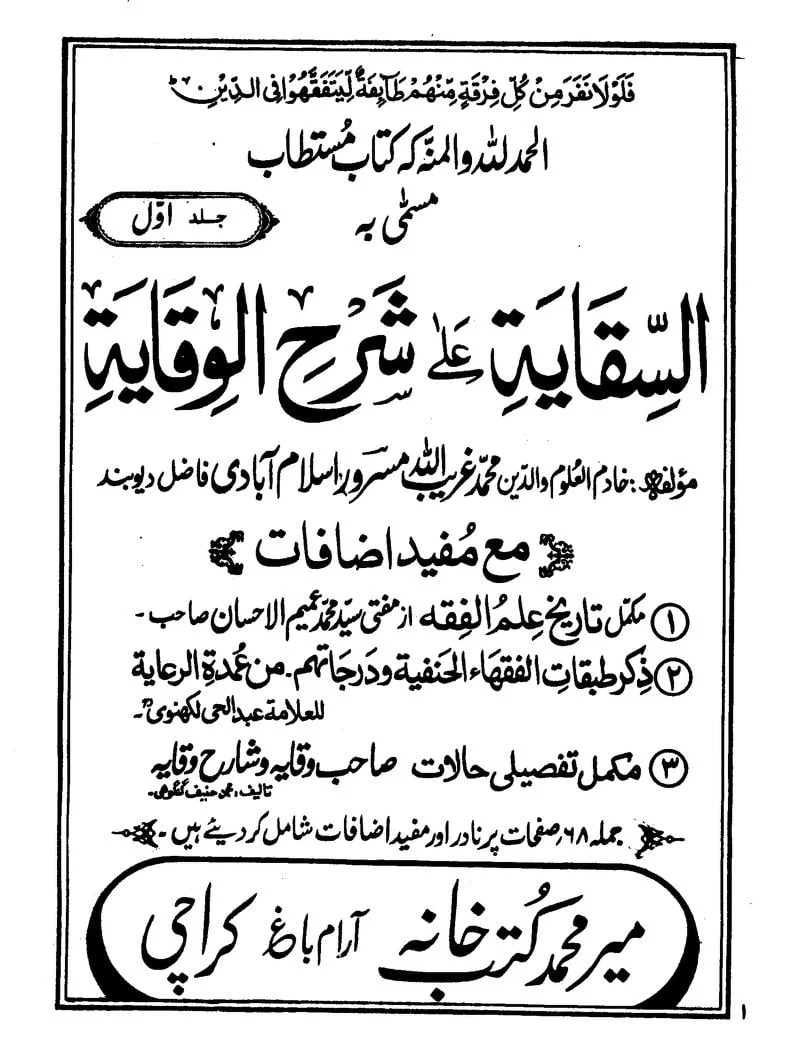 فَلَوْلَا نَفَرَ مِنْ كُلِّ فِرْقَةٍ مِّنْهُمْ طَآئِفَةٌ لِّيَتَفَقَّهُوْا فِي الدِّيْنِ
الحمد للہ والمنہ کہ کتاب مُستطاب
مسمّٰی بہ
جلد اوّل
السِّقَايَةِ عَلٰى شَرْحِ الْوِقَايَةِ
مؤلفہ : خادم العُلوم والدّین محمّد غریب اللہ مسرور اسلام آبادی فاضل دیوبند
مع مُفید اضافات
① مکمّل تاریخ عِلمُ الفِقہ از مفتی سیّد محمّد عمیم الاحسان صاحب ۔
② ذِکر طبقاتِ الفقهاء الحَنفية ودَرجاتهم ۔ من عُمدة الرعاية
للعلامة عبدالحی لکھنوی ؒ ۔
③ مکمل تفصیلی حالات صاحب وقایہ وشارح وقایہ
تالیف : محمد حنیف گنگوہی ۔
جملہ ۶۸ صفحات پر نادر اور مفید اضافات شامل کر دیئے ہیں ۔
میر محمد کُتب خانہ آرام باغ کراچی
۱